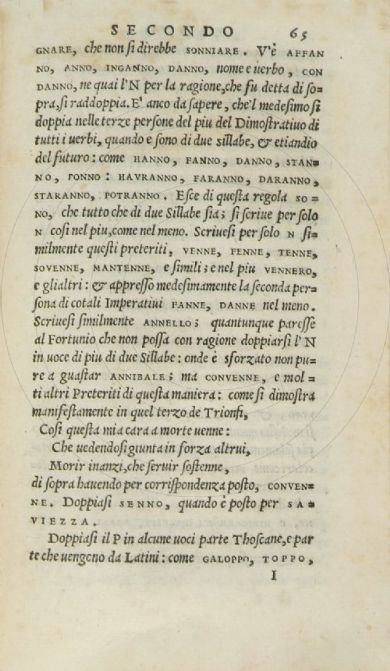 SECONDO 65
GNARE, che non si direbbe SONNIARE. V'è AFFAN
NO, ANNO, INGANNO, DANNO, nome e uerbo, CON
DANNO, ne quai l'N per la ragione, che fu detta di so-
pra, si raddoppia. E' anco da sapere, che'l medesimo si
doppia nelle terze persone del piu del Dimostratiuo di
tutti i uerbi, quando e sono di due sillabe, & etiandio
del futuro: come HANNO, FANNO, DANNO, STAN-
NO, PONNO: HAVRANNO, FARANNO, DARANNO,
STARANNO, POTRANNO. Esce di questa regola SO-
NO, che tutto che di due Sillabe sia; si scriue per solo
N cosi nel piu, come nel meno. Scriuesi per solo N si-
milmente questi preteriti, VENNE, FENNE, TENNE,
SOVENNE, MANTENNE, e simili; e nel piu VENNERO,
e gli altri: & appresso medesimamente la seconda per-
sona di cotali Imperatiui FANNE, DANNE nel meno.
Scriuesi similmente ANNELLO; quantunque paresse
al Fortunio che non possa con ragione doppiarsi l'N
in uoce di piu di due Sillabe: onde è sforzato non pu-
re a guastar ANNIBALE; ma CONVENNE, e mol-
ti altri Preteriti di questa maniera: come si dimostra
manifestamente in quel terzo de Trionfi,
Cosi questa mia cara a morte uenne:
Che uedendosi giunta in forza altrui,
Morir inanzi, che seruir sostenne,
di sopra hauendo per corrispondenza posto, CONVEN-
NE. Doppiasi SENNO, quando è posto per SA-
VIEZZA.
Doppiasi il P in alcune uoci parte Thoscane, e par
te che uengono da Latini: come GALOPPO, TOPPO,
I